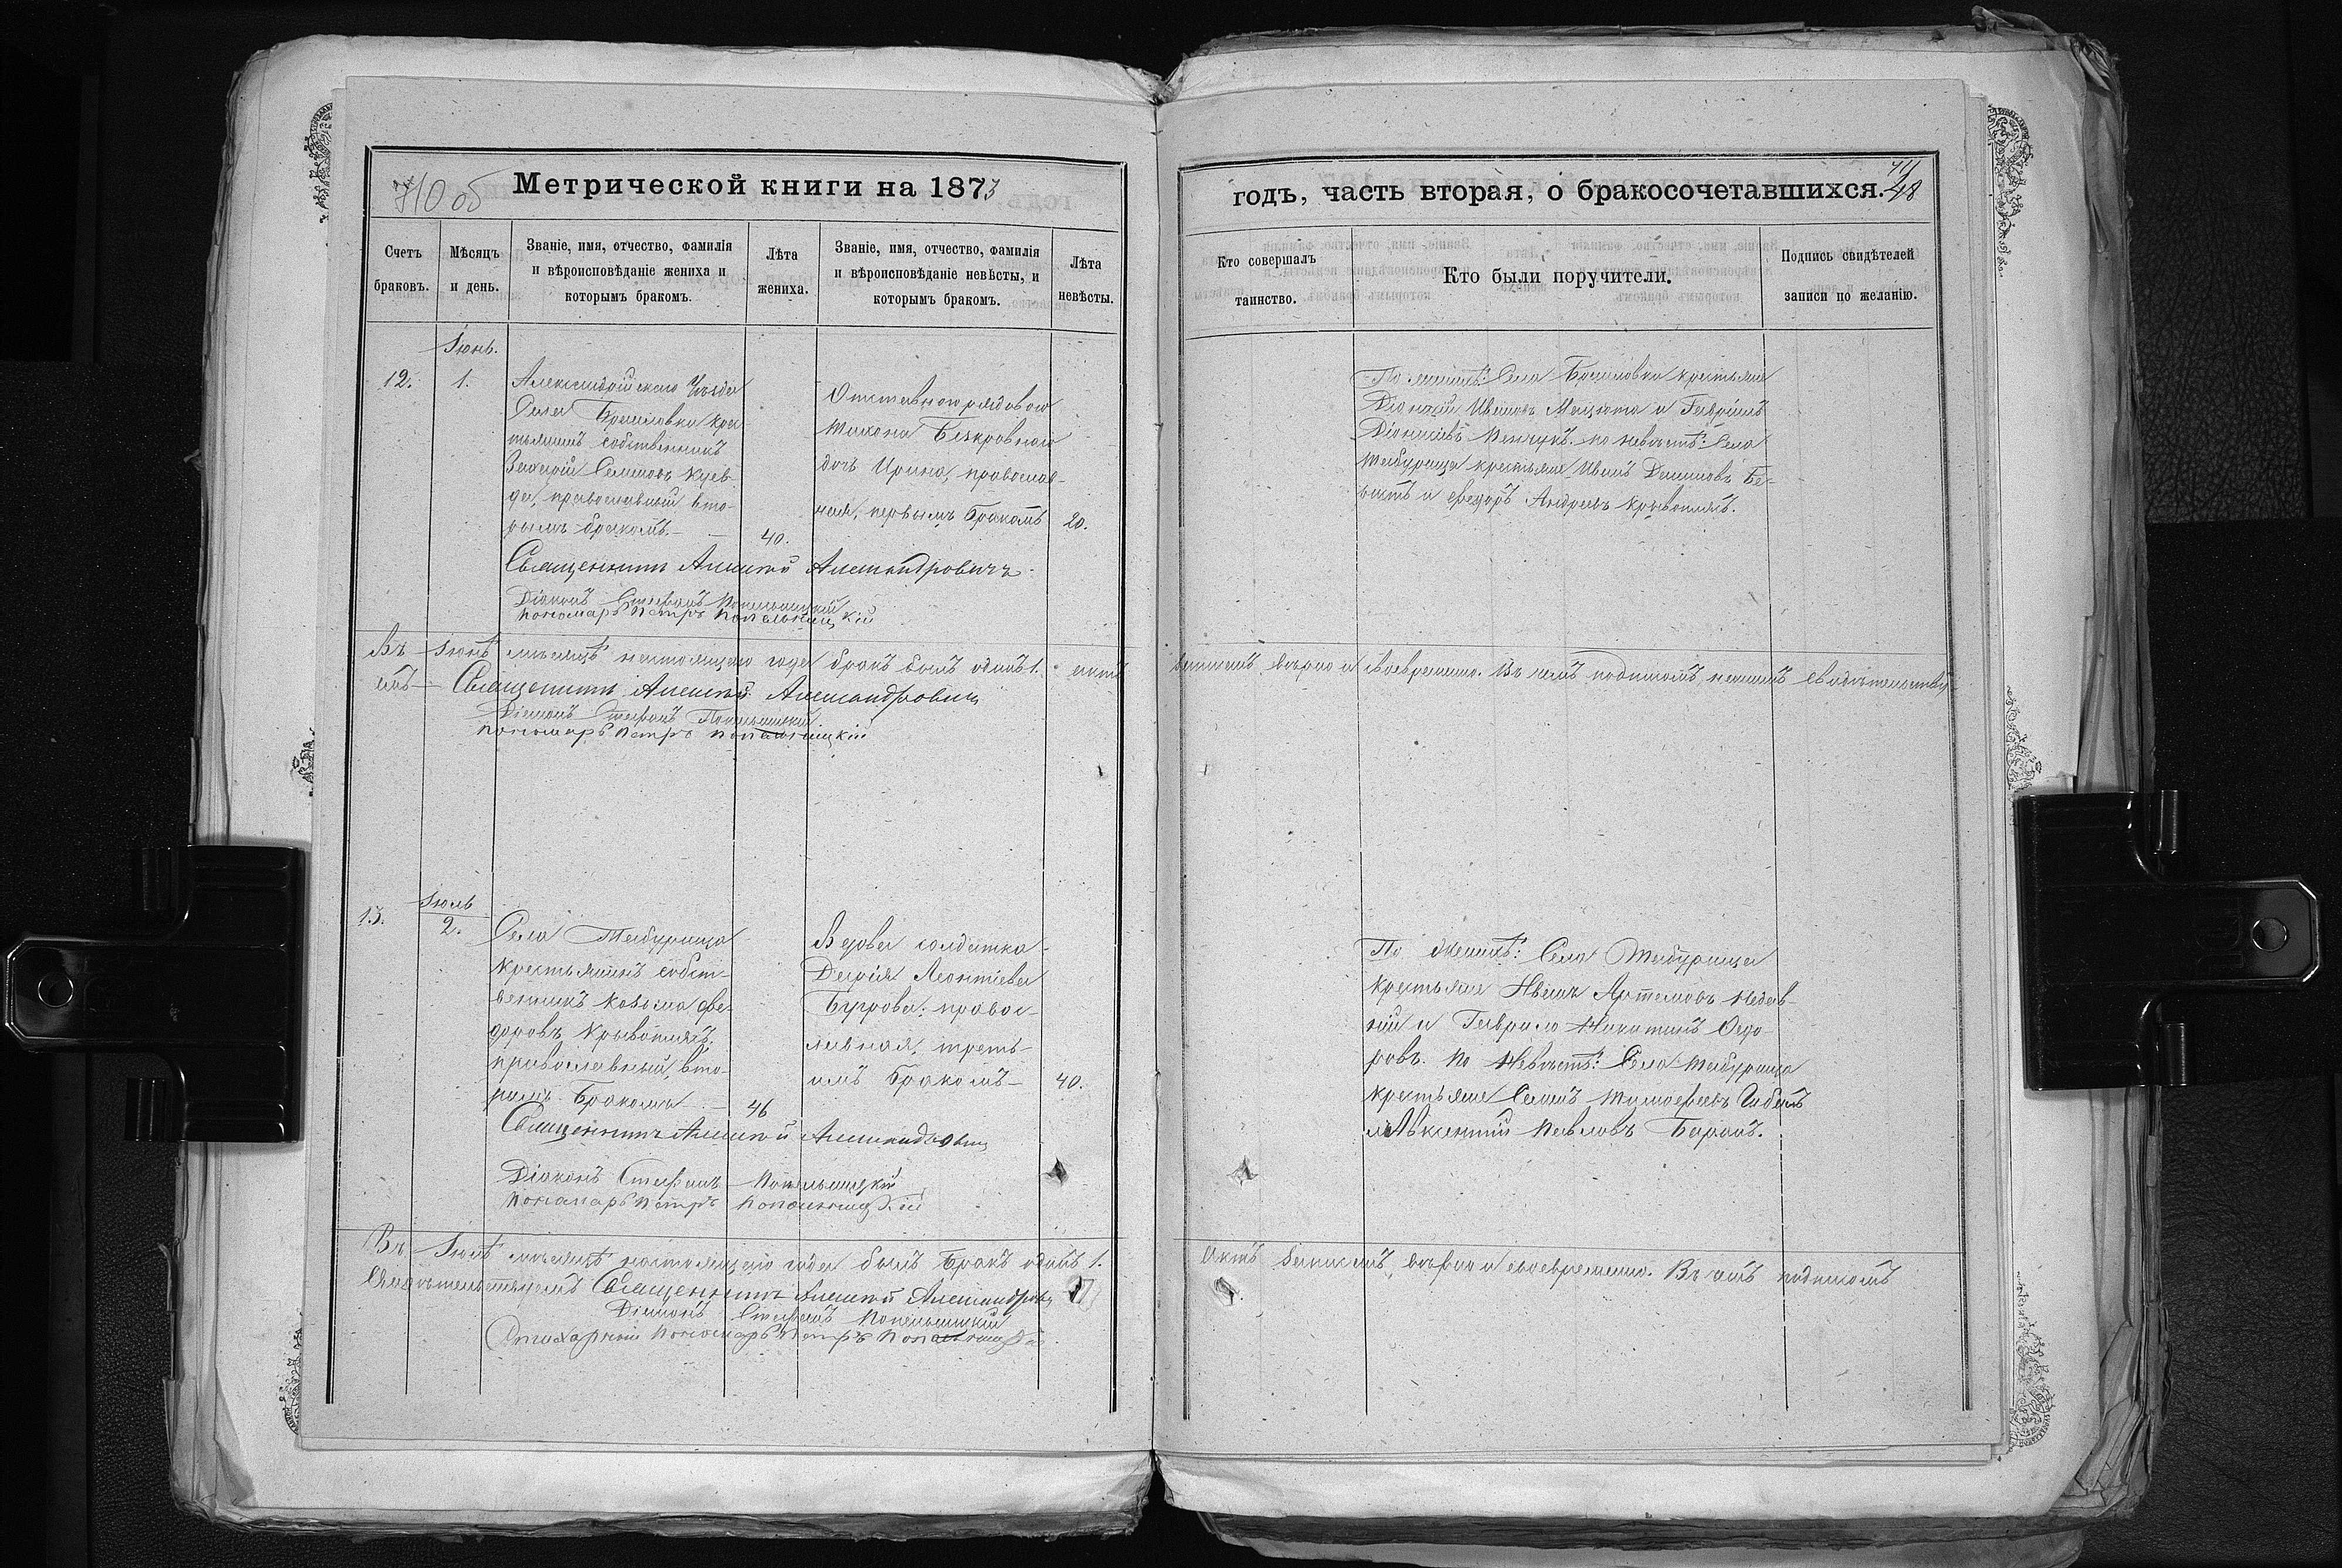 710 об
Метрической книги на 1873
Счетъ браковъ.
Мѣсяцъ и день.
Званіе, имя, отчество, фамилія
и вѣроисповѣданіе жениха и
которымъ бракомъ.
Лѣта жениха.
Званіе, имя, отчество, фамилія
и вѣроисповѣданіе невѣсты, и
которымъ бракомъ.
Лѣта невѣсты.
Іюнь.
12.
1.
Александрійскаго Уѣзда
Села Кре
стьянинъ собственникъ
Семеновъ
православный вто-
рымъ бракомъ.
40.
Отставного рядового
Тихона Безкровнаго
дочь Ирина, православ-
ная, первымъ бракомъ
20.
Священникъ Алексѣй Александровичъ
Діаконъ Стефанъ Попельницкій
Пономарь Петръ Попельницкій
Въ Іюнѣ мѣсяцѣ настоящаго года бракъ былъ одинъ 1. актъ
емъ Священникъ Алексѣй Александровичъ
Діаконъ Стефанъ Попельницкій
Пономарь Петръ Попельницкій
13.
Іюль
2.
Села Табурища
крестьянинъ собст-
венникъ Козьма Фе-
доровъ Крывошлякъ,
православный, вто-
рымъ Бракомъ
46
Вдова солдатка
Дарія Леонтіева
Бугрова: правос-
лавная, треть-
имъ Бракомъ
40.
Священникъ Алексѣй Александровичъ
Діаконъ Стефанъ Попельницкій
Пономарь Петръ Попельницкій
Въ Іюлѣ мѣсяцѣ настоящаго года былъ Бракъ одинъ 1.
Свидѣтельствуемъ Священникъ Алексѣй Александровичъ
Діаконъ Стефанъ Попельницкій
Стихарный Пономарь Петръ Попельницкій
годъ, часть вторая, о бракосочетавшихся.
711
48
Кто совершалъ таинство.
Кто были поручители.
Подпись свидѣтелей записи по желанію.
По женихѣ: Села крестьяне
Ивановъ и Гавріилъ
Діонисіевъ по невѣстѣ: Села
Табурища крестьяне Иванъ
и Федоръ Андреевъ Крывошлякъ.
записанъ вѣрно и своевременно. Въ чемъ подписомъ нашимъ свидѣтельству-
По женихѣ: Села Табурища
крестьяне Иванъ Артемовъ
и Гаврило Никитинъ Федо-
ровъ. По невѣстѣ: Села Табурища
крестьяне Семенъ Тимофеевъ
и Авксентій Павловъ Баранъ.
Актъ записанъ вѣрно и своевременно. Въ чемъ подписомъ